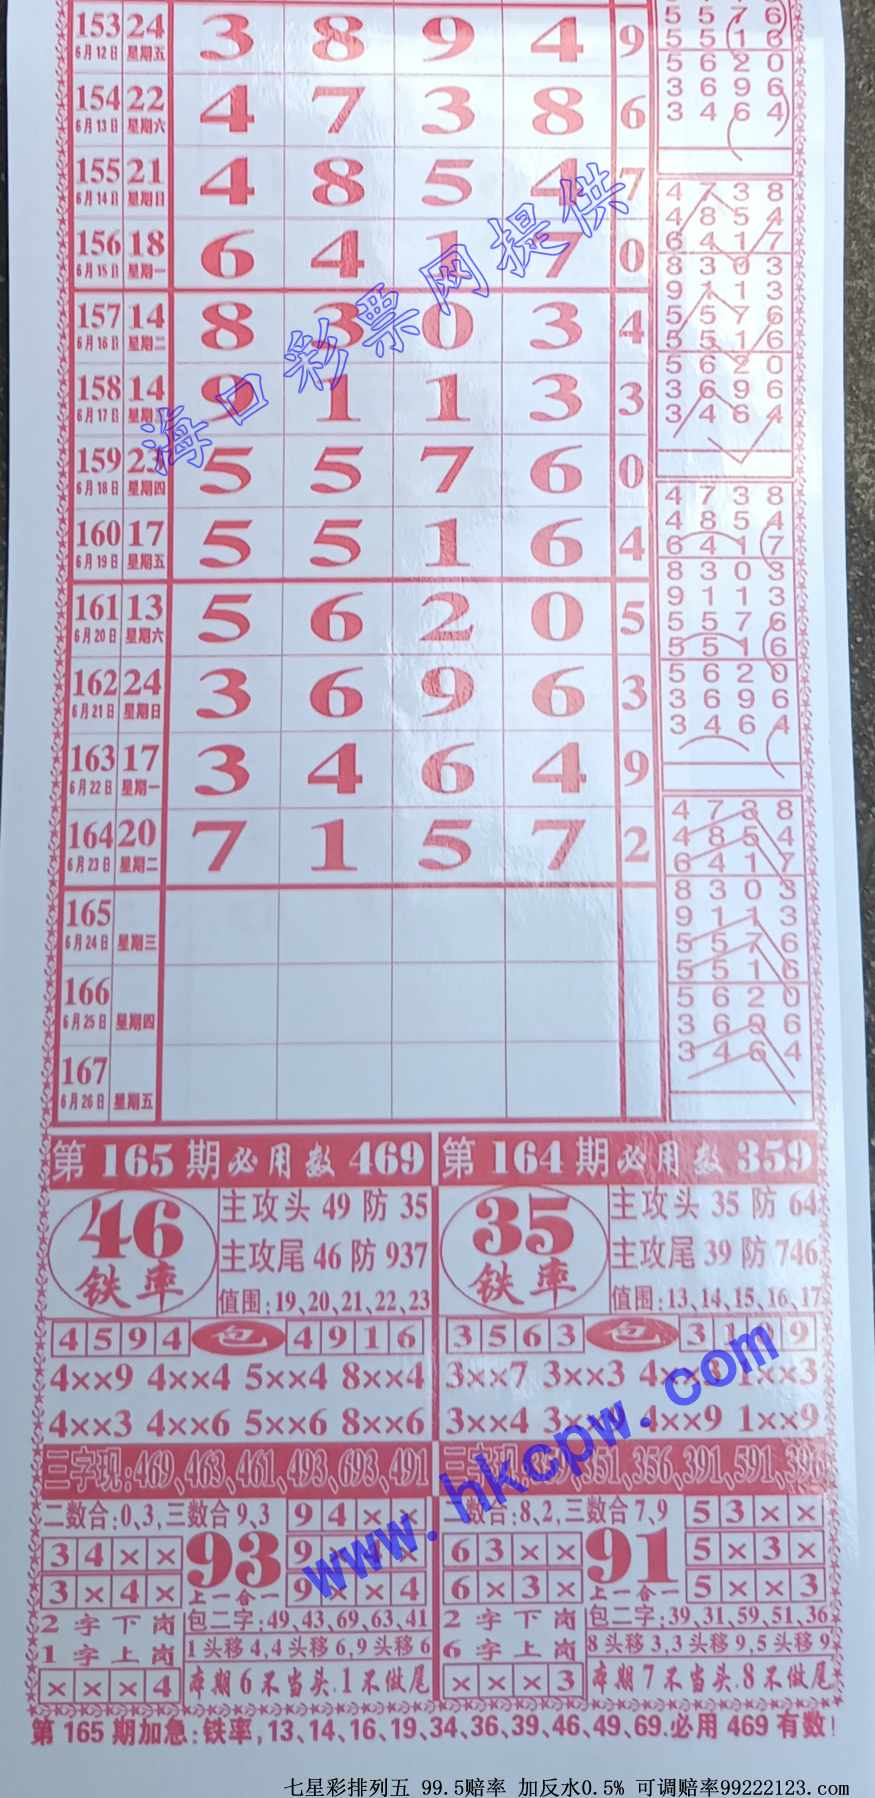 153 24 3 8 9 4 9
6月12日 星期五
154 22 4 7 3 8 6
6月13日 星期六
155 21 4 8 5 4 7
6月14日 星期日
156 18 6 4 1 7 0
6月15日 星期一
157 14 8 3 0 3 4
6月16日 星期二
158 14 9 1 1 3 3
6月17日 星期三
159 23 5 5 7 6 0
6月18日 星期四
160 17 5 5 1 6 4
6月19日 星期五
161 13 5 6 2 0 5
6月20日 星期六
162 24 3 6 9 6 3
6月21日 星期日
163 17 3 4 6 4 9
6月22日 星期一
164 20 7 1 5 7 2
6月23日 星期二
165
6月24日 星期三
166
6月25日 星期四
167
6月26日 星期五
5 5 7 6
5 5 1 6
5 6 2 0
3 6 9 6
3 4 6 4
4 7 3 8
4 8 5 4
6 4 1 7
8 3 0 3
9 1 1 3
5 5 7 6
5 5 1 6
5 6 2 0
3 6 9 6
3 4 6 4
4 7 3 8
4 8 5 4
6 4 1 7
8 3 0 3
9 1 1 3
5 5 7 6
5 5 1 6
5 6 2 0
3 6 9 6
3 4 6 4
4 7 3 8
4 8 5 4
6 4 1 7
8 3 0 3
9 1 1 3
5 5 7 6
5 5 1 6
5 6 2 0
3 6 9 6
3 4 6 4
海口彩票网提供
第165期必用数469
46
铁率
主攻头 49 防 35
主攻尾 46 防 937
值围:19、20、21、22、23
4 5 9 4 包 4 9 1 6
4××9 4××4 5××4 8××4
4××3 4××6 5××6 8××6
三字现:469、463、461、493、693、491
二数合:0、3,三数合9、3
9 4 × ×
3 4 × ×
3 × 4 ×
93
上一合一
9 × × 4
2字下岗
1字上岗
× × × 4
包二字:49、43、69、63、41
1头移4,4头移6,9头移6
本期6不当头.1不做尾
第164期必用数359
35
铁率
主攻头 35 防 64
主攻尾 39 防 746
值围:13、14、15、16、17
3 5 6 3 包
3××7 3××3
1××3
3××4
4××9 1××9
三字现:359、351、356、391、591、396
二数合:8、2,三数合7、9
5 3 × ×
6 3 × ×
6 × 3 ×
91
上一合一
5 × 3 ×
5 × × 3
2字下岗
6字上岗
× × × 3
包二字:39、31、59、51、36
8头移3,3头移9,5头移9
本期7不当头.8不做尾
www.hkcpw.com
第165期加急:铁率,13、14、16、19、34、36、39、46、49、69.必用469有数!
七星彩排列五 99.5赔率 加反水0.5% 可调赔率99222123.com